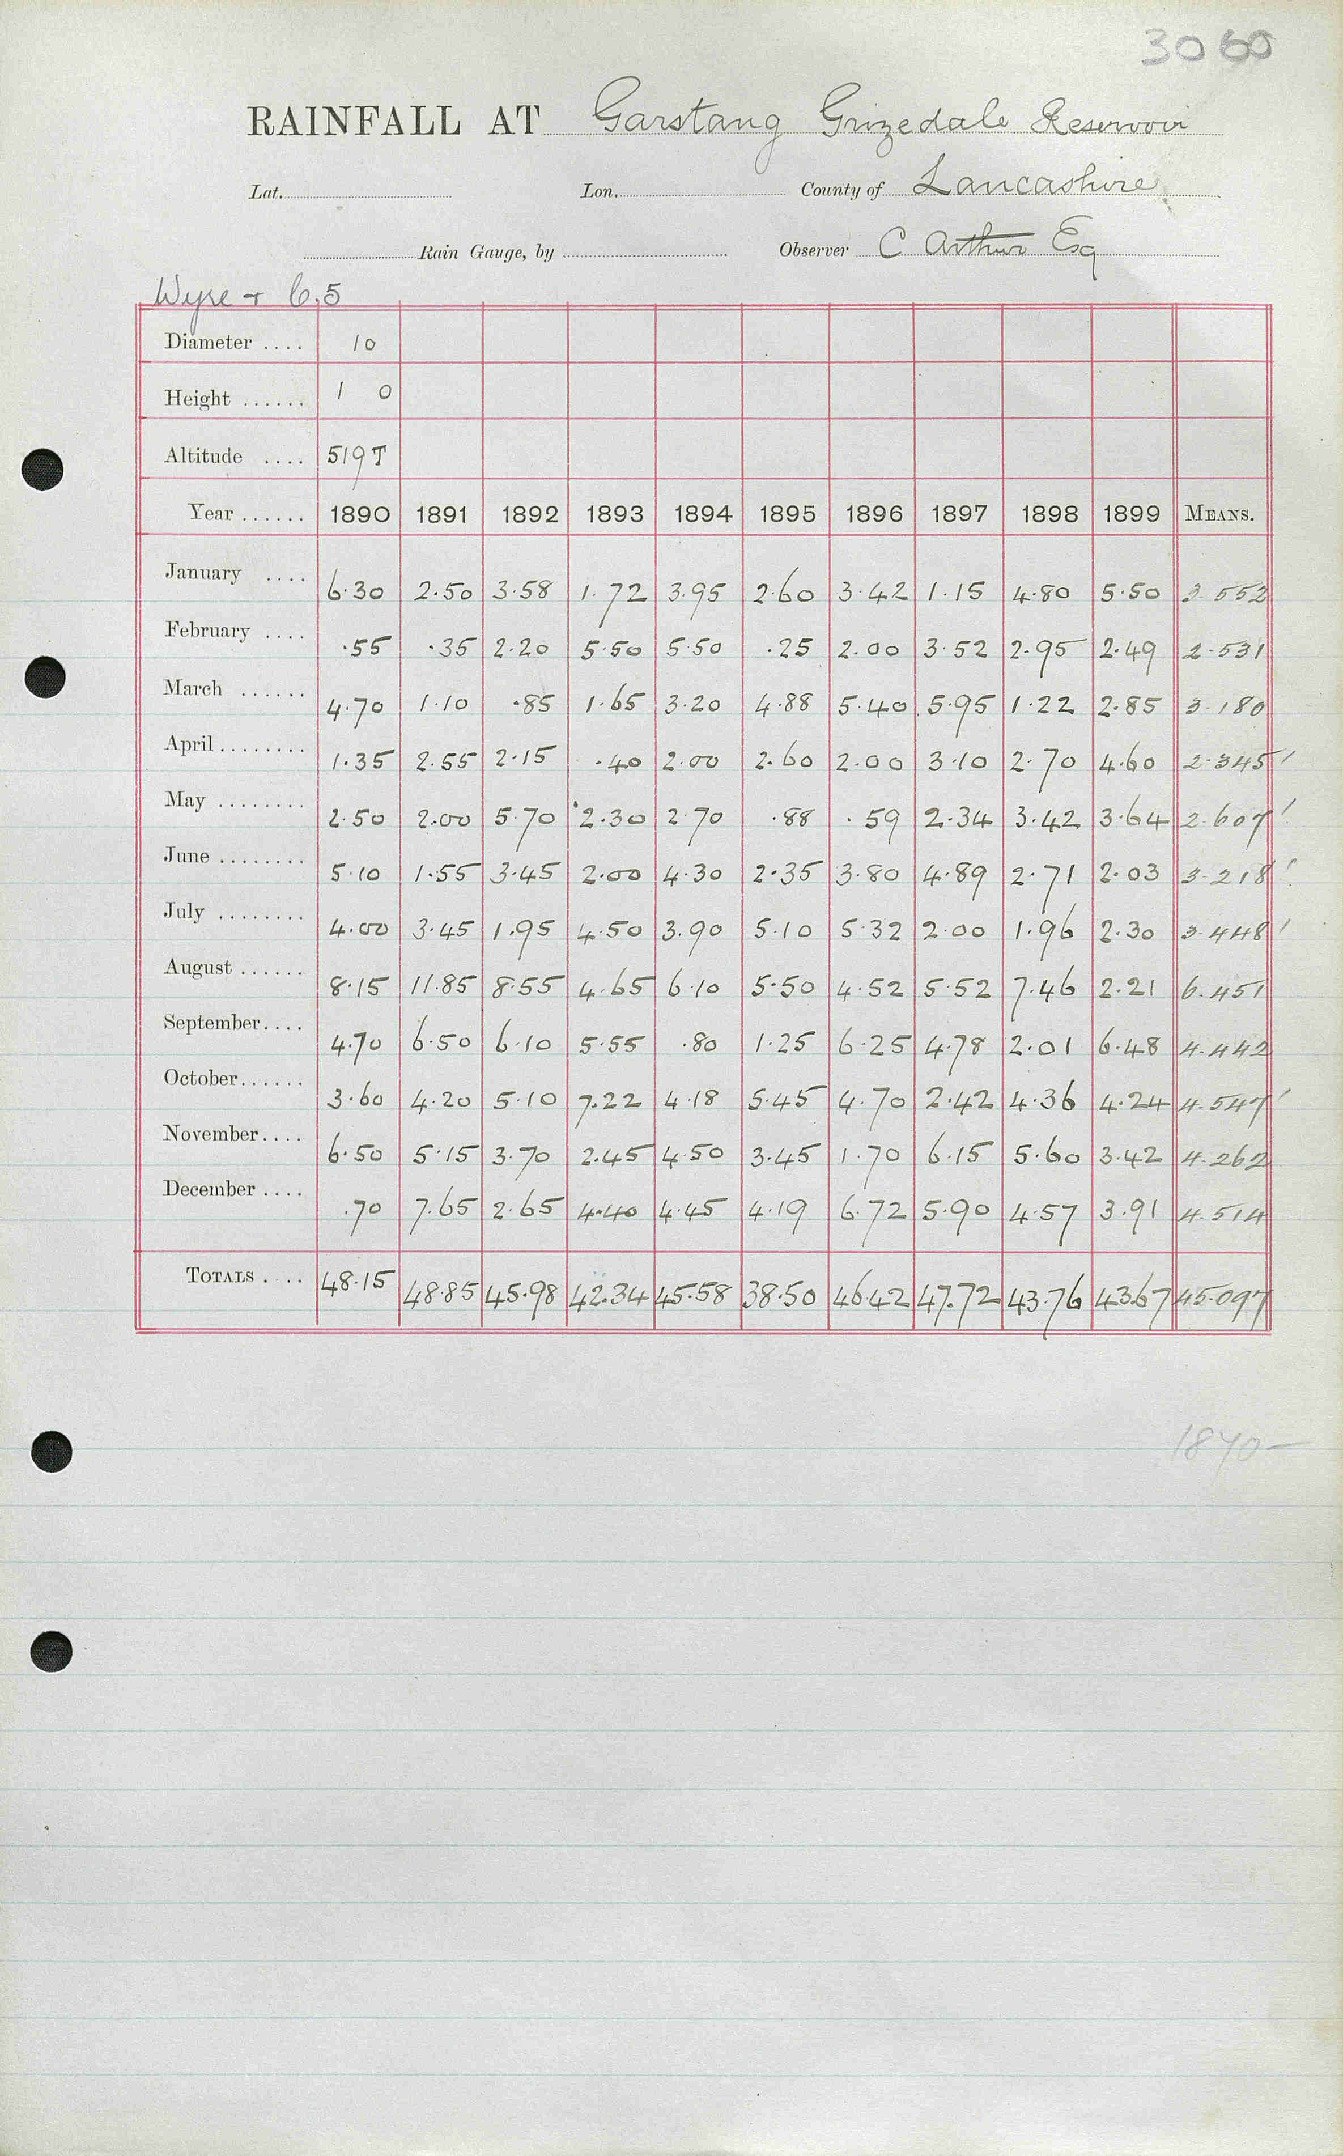 3060
RAINFALL AT Garstang Grizedale Reservoir
Lat. Lon. County of Lancashire
Rain Gauge, by Observer C Arthur Esq
Wyre + C.5
Diameter .... 10
Height ...... 1 0
Altitude .... 519 T
Year ...... 1890 1891 1892 1893 1894 1895 1896 1897 1898 1899 MEANS.
January .... 6.30 2.50 3.58 1.72 3.95 2.60 3.42 1.15 4.80 5.50 3.552
February .... .55 .35 2.20 5.50 5.50 .25 2.00 3.52 2.95 2.49 2.531
March ...... 4.70 1.10 .85 1.65 3.20 4.88 5.40 5.95 1.22 2.85 3.180
April ........ 1.35 2.55 2.15 .40 2.00 2.60 2.00 3.10 2.70 4.60 2.345
May ........ 2.50 2.00 5.70 2.30 2.70 .88 .59 2.34 3.42 3.64 2.607
June ........ 5.10 1.55 3.45 2.00 4.30 2.35 3.80 4.89 2.71 2.03 3.218
July ........ 4.00 3.45 1.95 4.50 3.90 5.10 5.32 2.00 1.96 2.30 3.448
August ...... 8.15 11.85 8.55 4.65 6.10 5.50 4.52 5.52 7.46 2.21 6.451
September.... 4.70 6.50 6.10 5.55 .80 1.25 6.25 4.78 2.01 6.48 4.442
October...... 3.60 4.20 5.10 7.22 4.18 5.45 4.70 2.42 4.36 4.24 4.547
November.... 6.50 5.15 3.70 2.45 4.50 3.45 1.70 6.15 5.60 3.42 4.262
December .... .70 7.65 2.65 4.40 4.45 4.19 6.72 5.90 4.57 3.91 4.514
TOTALS .... 48.15 48.85 45.98 42.34 45.58 38.50 46.42 47.72 43.76 43.67 45.097
1870-